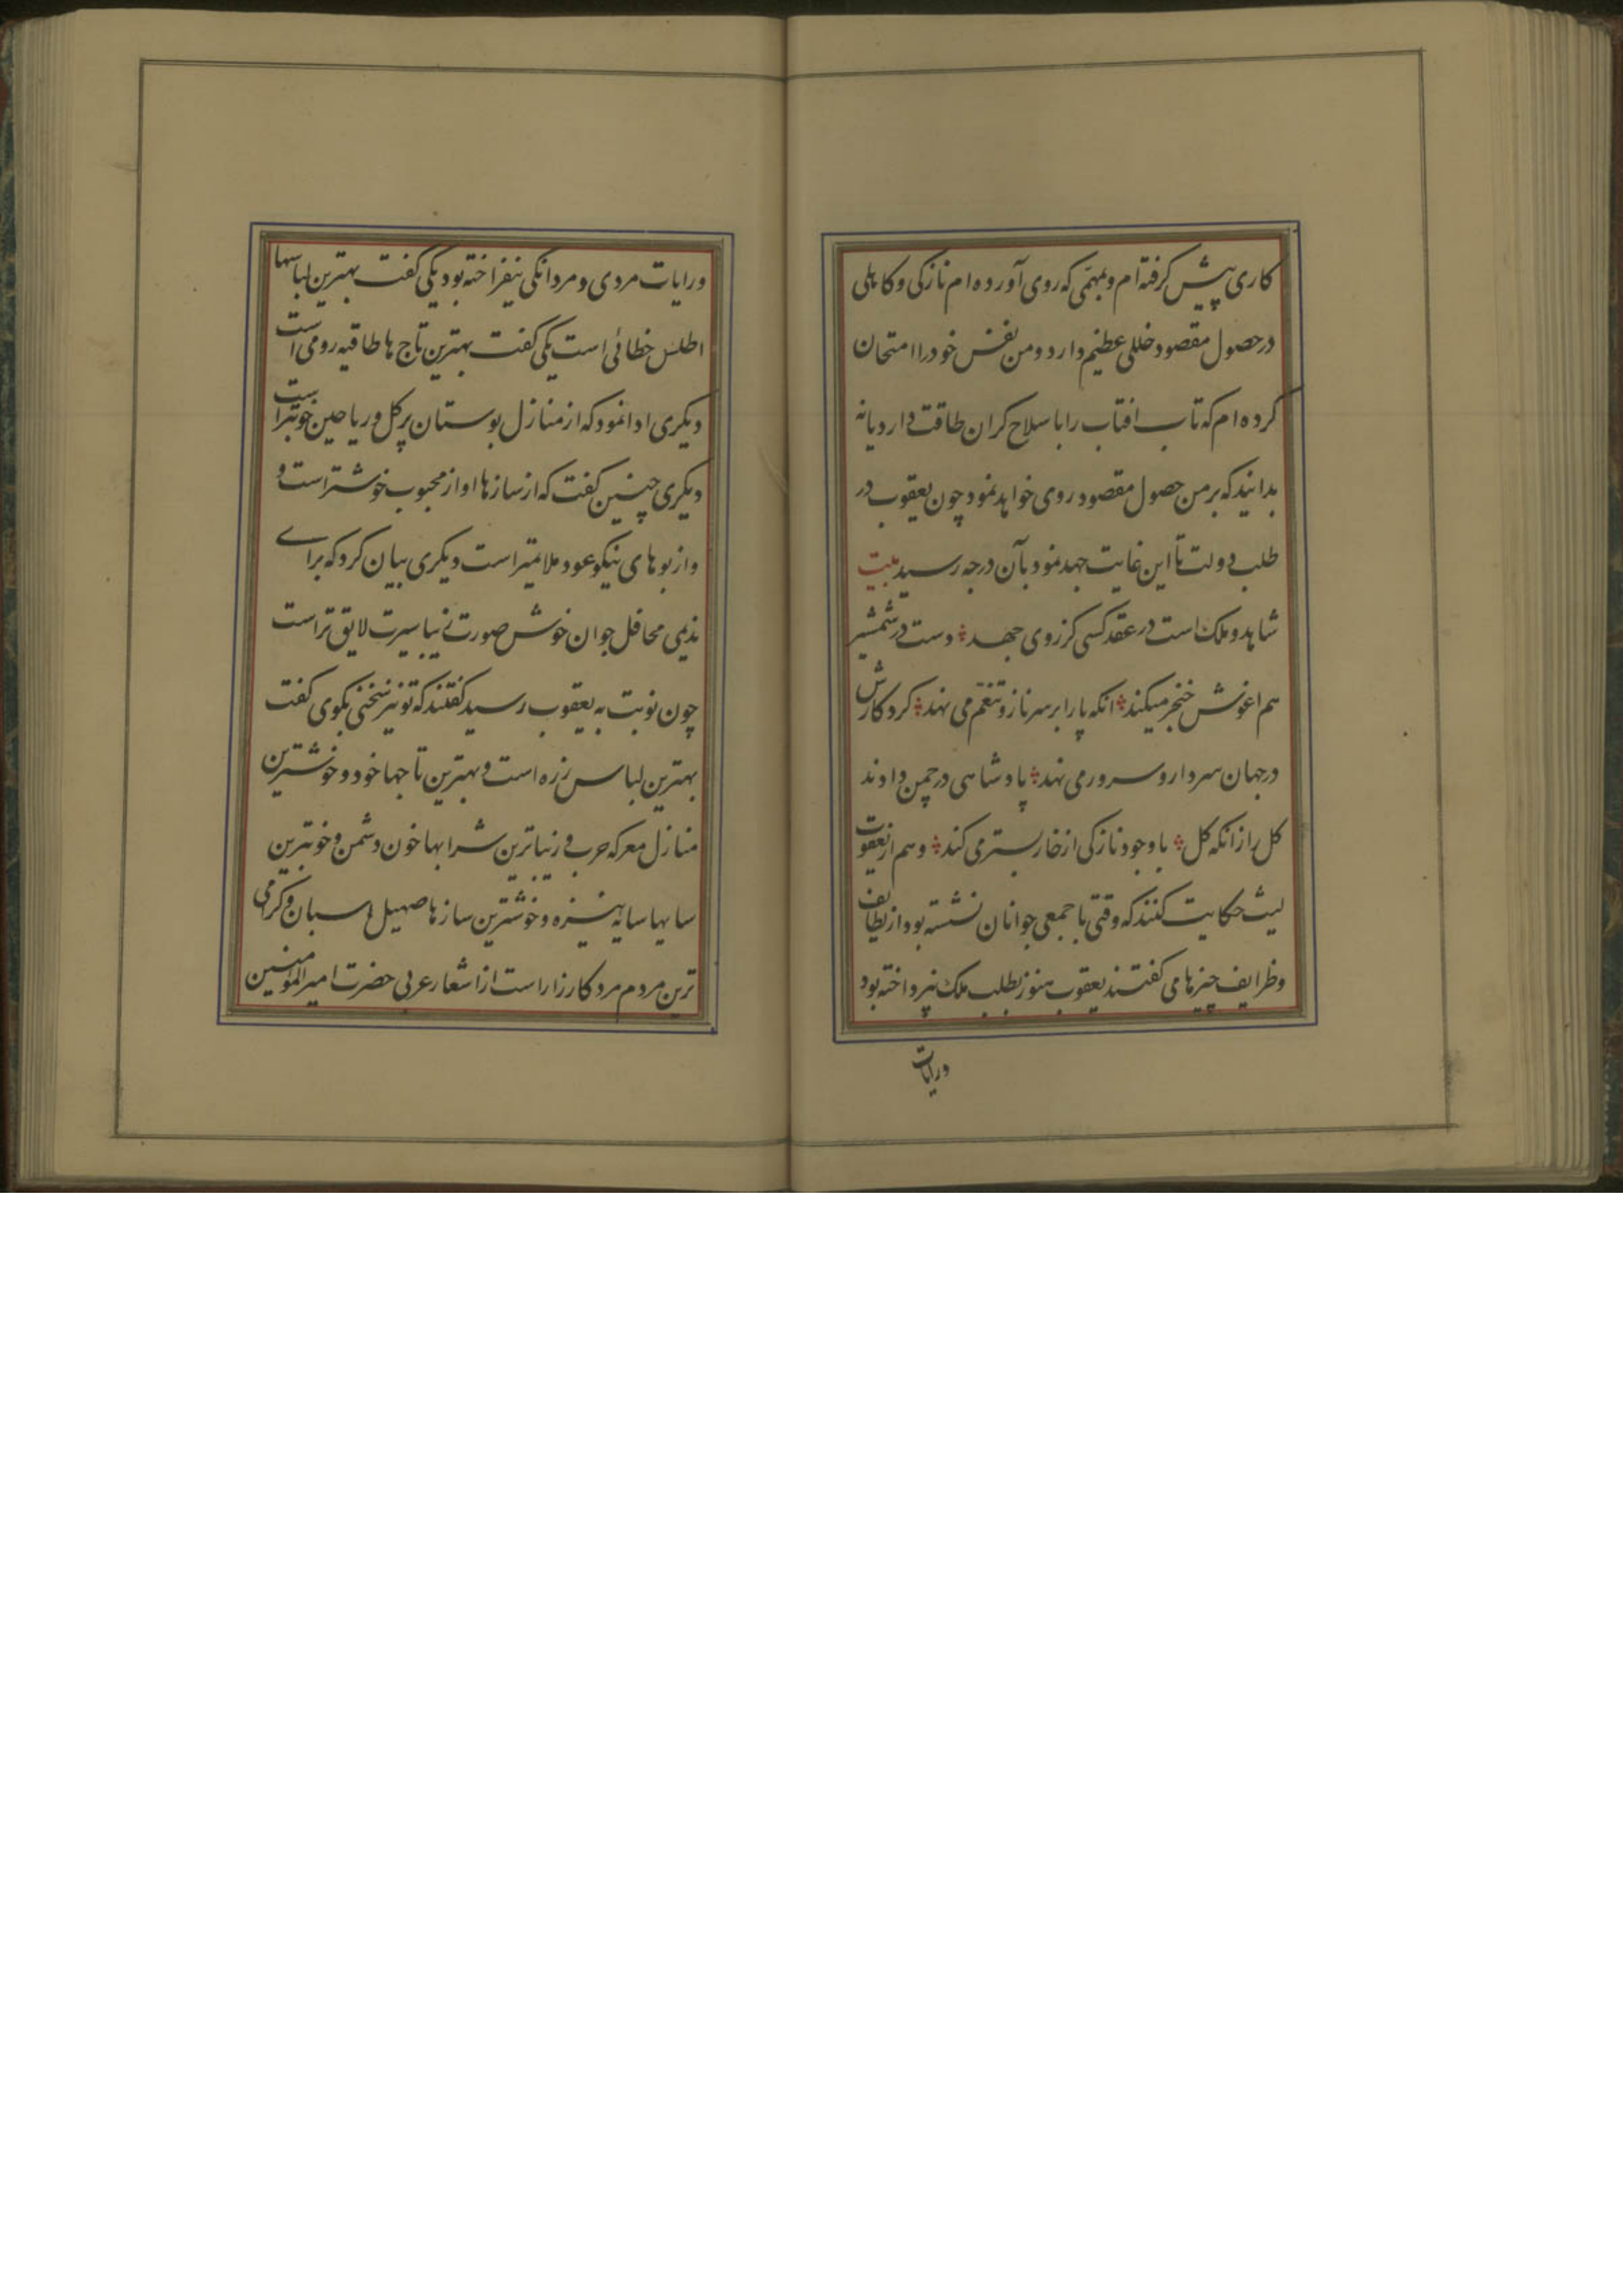 کاری پیش گرفته‌ام و بمهمّی که روی آورده‌ام نازکی و کاهلی
در حصول مقصود خللی عظیم دارد و من نفس خود را امتحان
کرده‌ام که تاب افتاب را با سلاح کران طاقت دارد یا نه
بدانید که بر من حصول مقصود روی خواهد نمود چون یعقوب در
طلب دولت تا این غایت جهد نمود بآن درجه رسید بیت
شاهد و ملک است در عقد کسی کز روی جهد دست در شمشیر
هم اغوش خنجر میکند انکه پا را بر سر ناز و تنعّم می نهد کرد کارش
در جهان سردار و سرور می نهد پادشاهی در چمن دادند
کل را زانکه کل با وجود نازکی از خار بستر می کند و هم از یعقوب
لیث حکایت کنند که وقتی با جمعی جوانان نشسته بود از لطایف
و ظرایف چیزها می کفتند یعقوب هنوز بطلب ملک نپرداخته بود
ورایات
ورایات مردی و مردانکی نیفراخته بود یکی کفت بهترین لباسها
اطلس خطائی است یکی کفت بهترین تاج ها طاقیه رومی است
دیکری ادا نمود که از منازل بوستان پر کل و ریاحین خوبتر است
دیکری چنین کفت که از سازها اواز محبوب خوشتر است و
و از بوهای نیکو عود ملایمتر است دیکری بیان کرد که برای
ندیمی محافل جوان خوش صورت زیبا سیرت لایق تر است
چون نوبت به یعقوب رسید کفتند که تو نیز سخنی بکوی کفت
بهترین لباس زره است و بهترین تاجها خود و خوشترین
منازل معرکه حرب و زیباترین شرابها خون دشمن و خوبترین
سایها سایه نیزه و خوشترین سازها صهیل اسبان و کرامی
ترین مردم مرد کارزار است از اشعار عربی حضرت امیرالمؤمنین